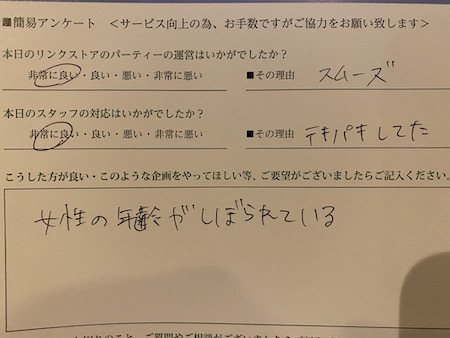 ■簡易アンケート <サービス向上の為、お手数ですがご協力をお願い致します>
本日のリンクストアのパーティーの運営はいかがでしたか?
非常に良い・良い・悪い・非常に悪い ■その理由 スムーズ
本日のスタッフの対応はいかがでしたか?
非常に良い・良い・悪い・非常に悪い ■その理由 テキパキしてた
こうした方が良い・このような企画をやってほしい等、ご要望がございましたらご記入ください。
女性の年齢がしぼられている